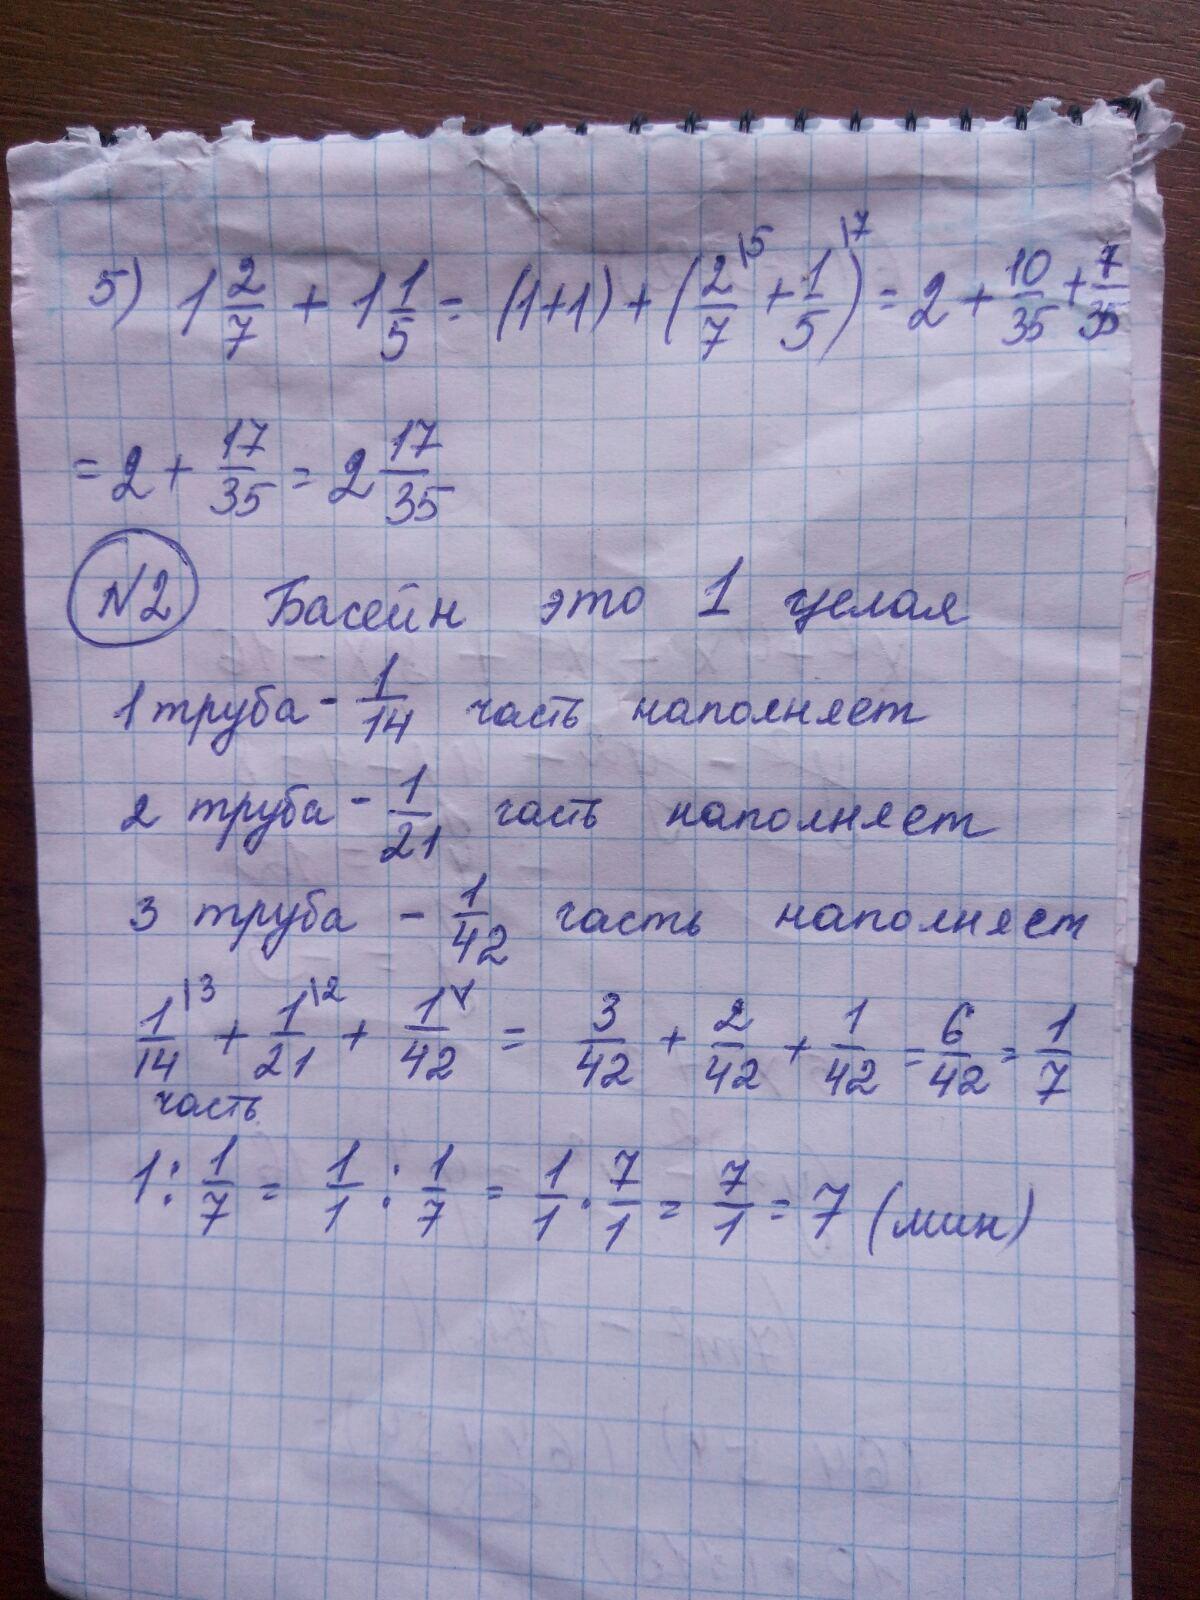 5) 1 2/7 + 1 1/5 = (1+1) + (2/7 |5 + 1/5) |7 = 2 + 10/35 + 7/35
= 2 + 17/35 = 2 17/35
N2 Басейн это 1 целая
1 труба - 1/14 часть наполняет
2 труба - 1/21 часть наполняет
3 труба - 1/42 часть наполняет
1/14 |3 + 1/21 |2 + 1/42 = 3/42 + 2/42 + 1/42 = 6/42 = 1/7
часть
1 : 1/7 = 1/1 : 1/7 = 1/1 · 7/1 = 7/1 = 7 (мин)